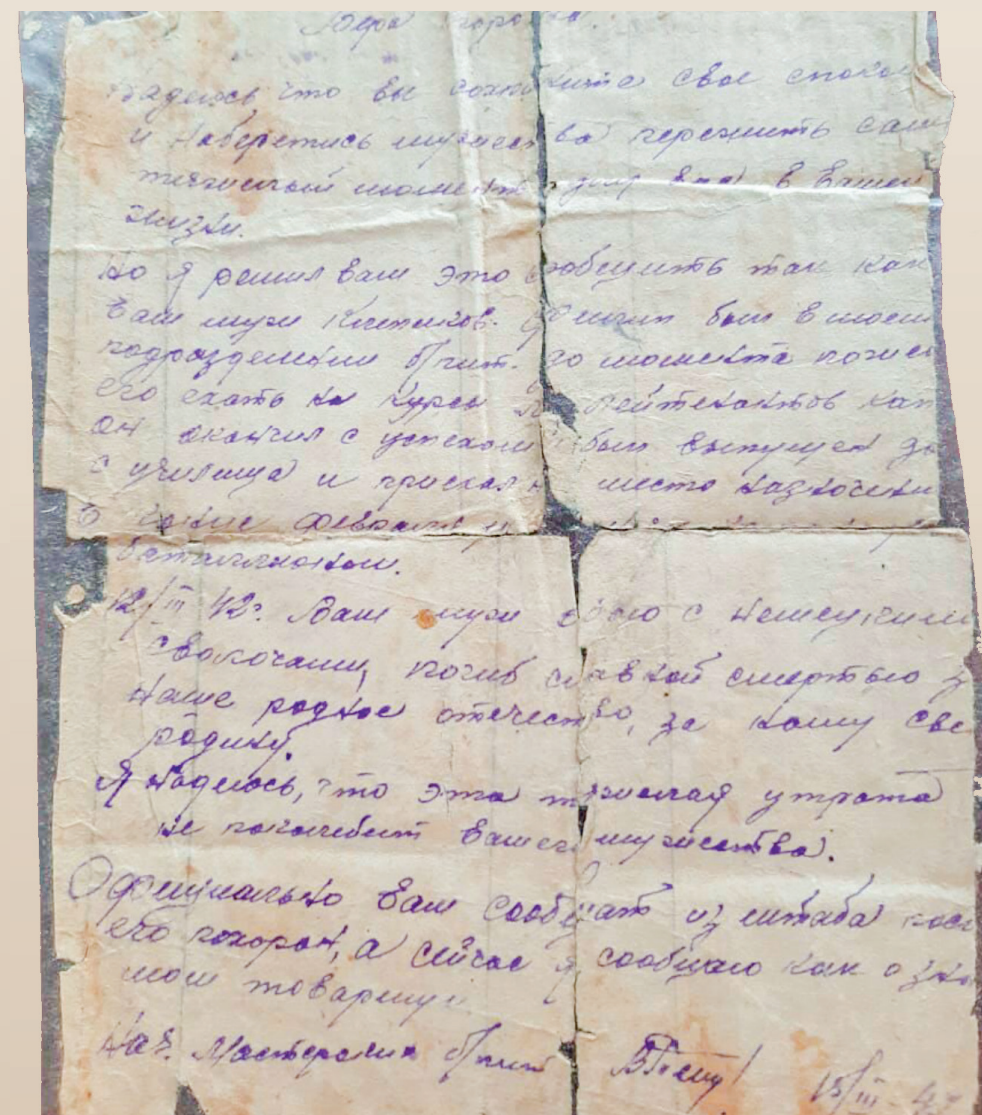 Надеюсь что вы сохраните свое спокой
и наберетись мужества пережить самы
тяжелый момент для вас в вашей
жизни.
Но я решил вам это сообщить так как
ваш муж был в моем
подразделении до момента
его ехать на курсы лейтенантов как
он окончил с успехом был выпущен
с училища и прислан место назначени
В феврале
батальоном.
12/III 42г. Ваш муж в бою с немецкими
сволочами, погиб славной смертью з
наше родное отечество, за нашу сво
родину.
Я надеюсь, что эта тяжелая утрата
не поколебит вашего мужества.
Официально вам сообщат из штаба посл
его похорон, а сичас я сообщаю как о
мои товарищи
Нач. Мастерских 15/III - 4